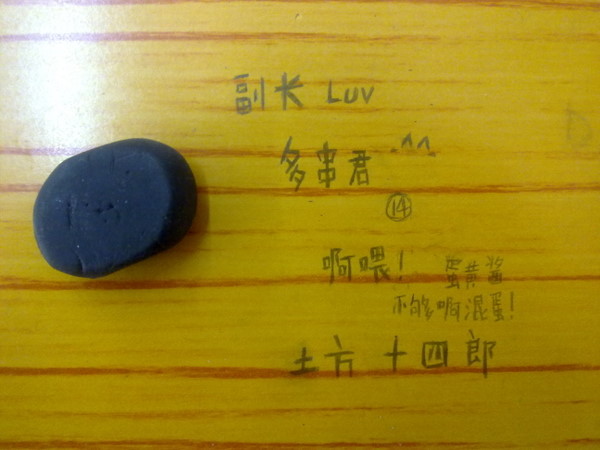 副长 LUV
多串君 ^^
⑭
啊喂! 蛋黄酱
不够啊混蛋!
土方十四郎